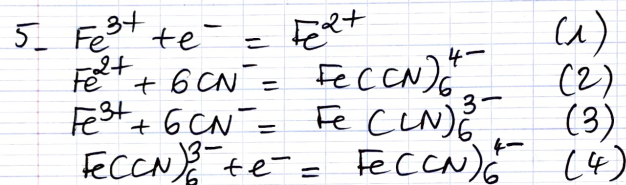 5- Fe³⁺ + e⁻ = Fe²⁺ (1)
Fe²⁺ + 6CN⁻ = Fe(CN)₆⁴⁻ (2)
Fe³⁺ + 6CN⁻ = Fe(CN)₆³⁻ (3)
Fe(CN)₆³⁻ + e⁻ = Fe(CN)₆⁴⁻ (4)